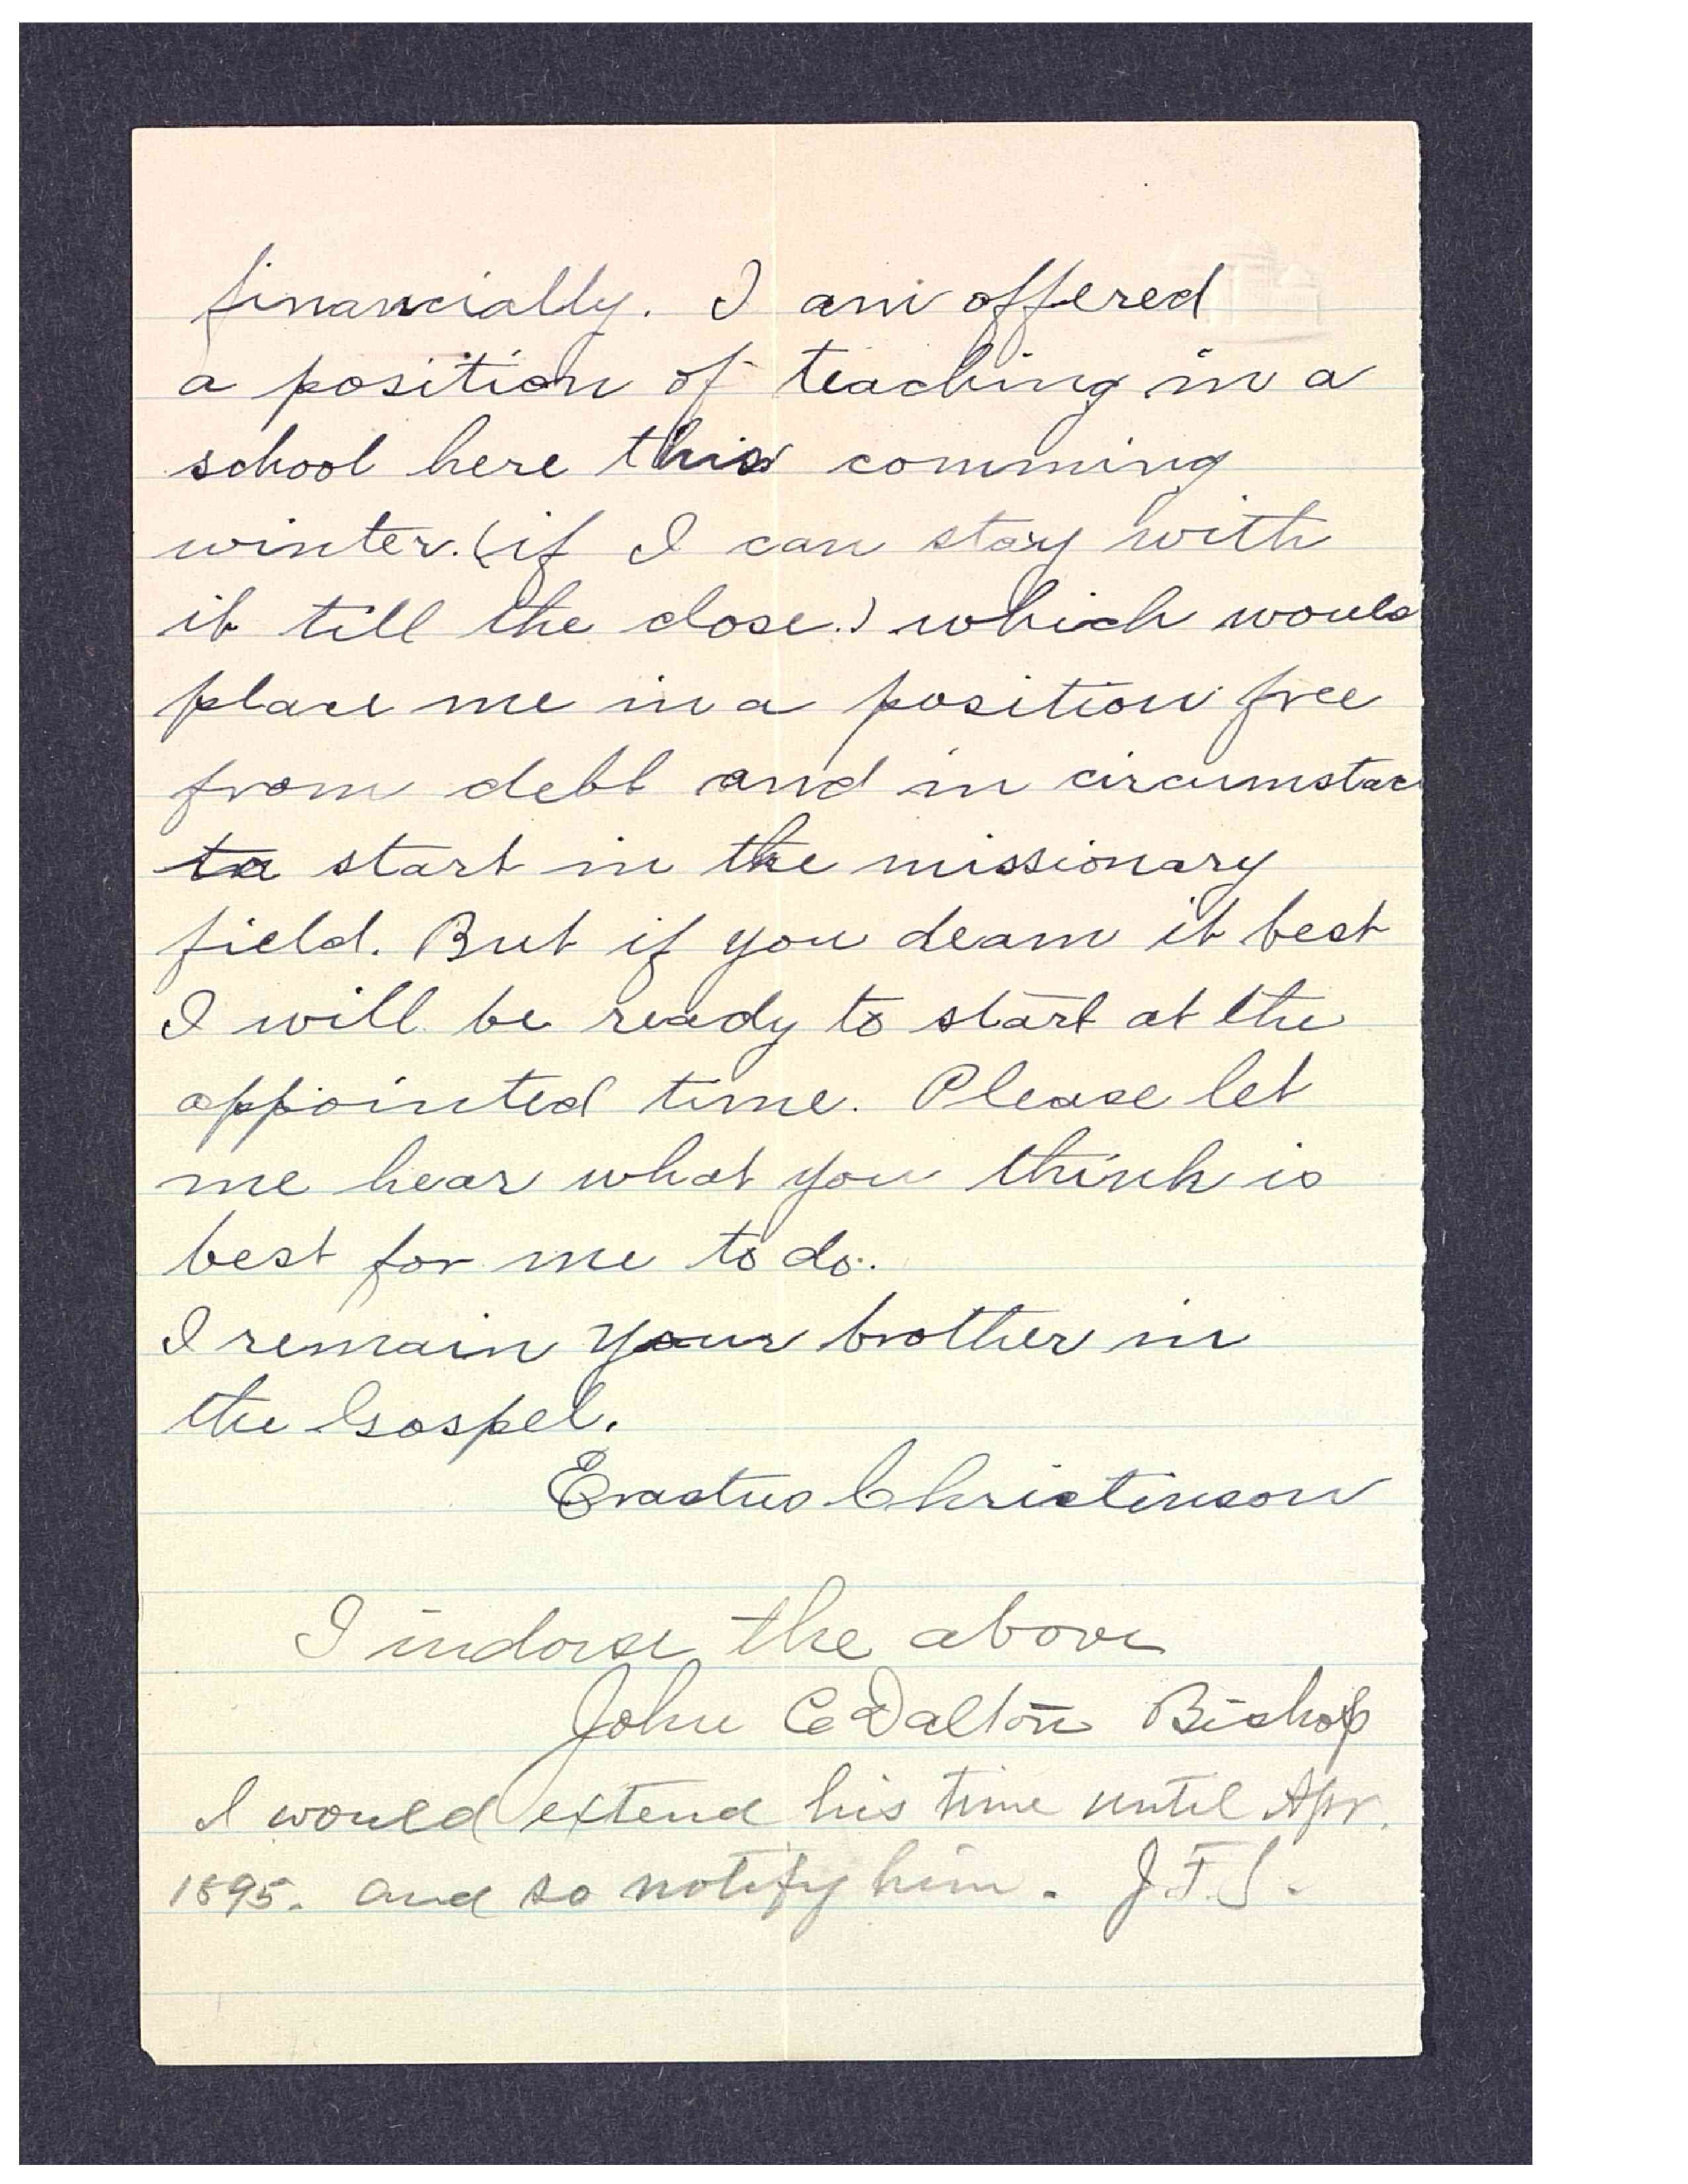 financially. I am offered
a position of teaching in a
school here this comming
winter. (if I can stay with
it till the close.) which would
place me in a position free
from debt and in circumstac
to start in the missionary
field. But if you deam it best
I will be ready to start at the
appointed time. Please let
me hear what you think is
best for me to do.
I remain your brother in
the Gospel.
Erastus Christinson
I indorse the above
John C Dalton Bishop
I would extend his time until Apr.
1895. and so notify him. J.F.S.